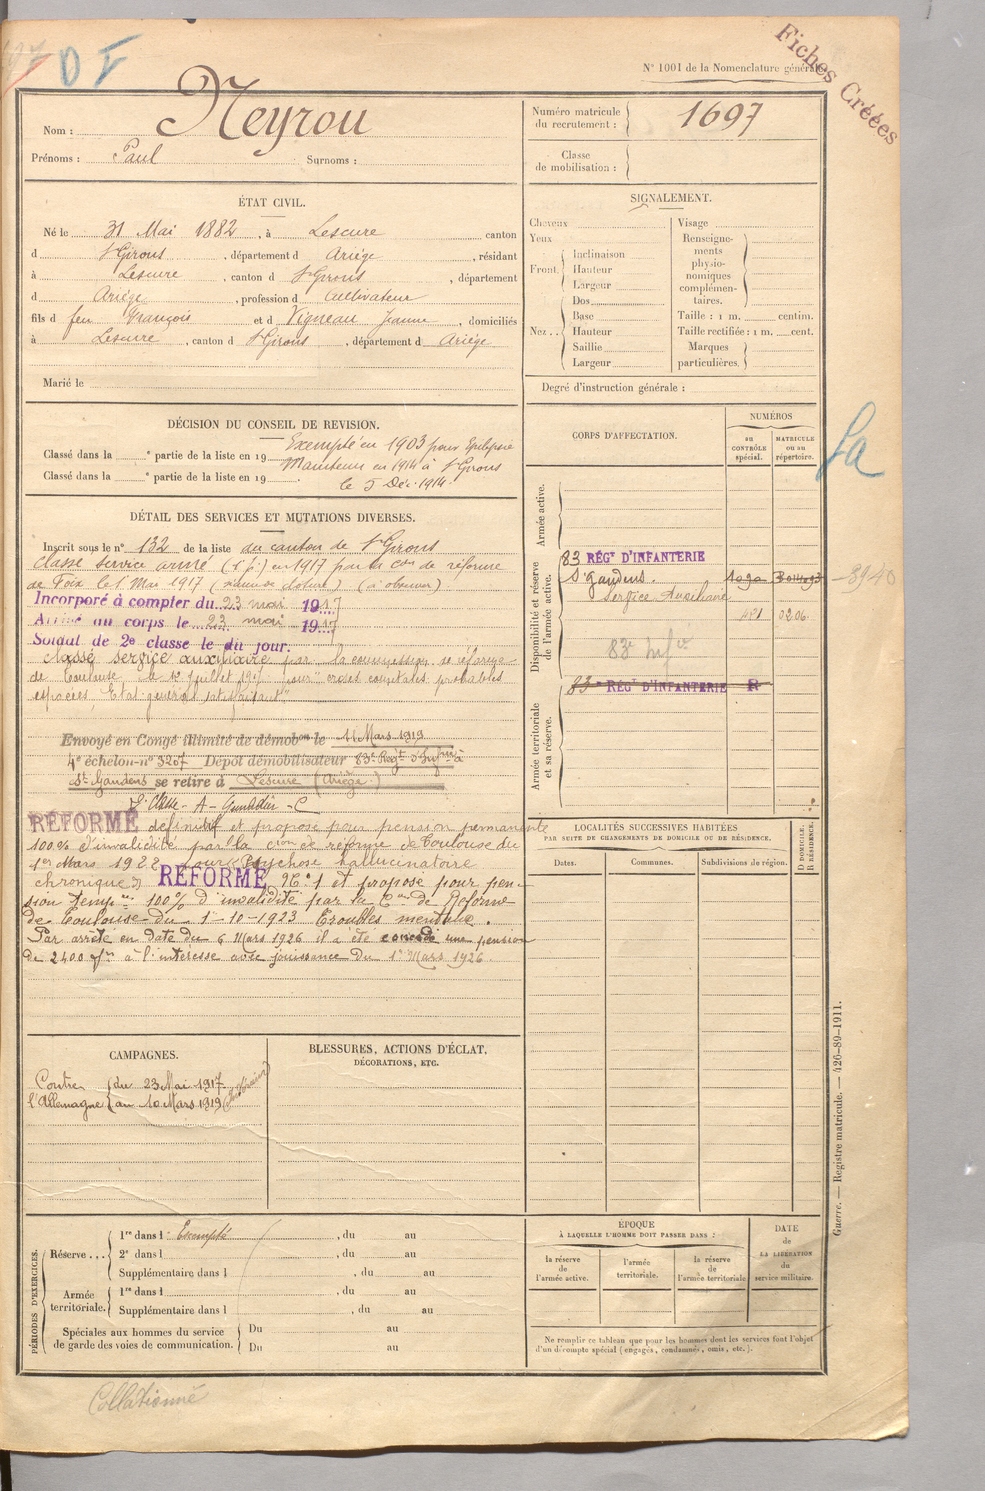 DF
Fiches Créées
N° 1001 de la Nomenclature générale
Nom : Neyrou
Prénoms : Paul Surnoms :
Numéro matricule du recrutement : 1697
Classe de mobilisation :
ÉTAT CIVIL.
Né le 31 Mai 1882, à Lescure canton
d St Girons, département d Ariége, résidant
à Lescure, canton d St Girons, département
d Ariége, profession d cultivateur
fils d feu François et d Vigneau Jeanne, domiciliés
à Lescure, canton d St Girons, département d Ariége
Marié le
SIGNALEMENT.
Cheveux
Yeux
Front. Inclinaison
Hauteur
Largeur
Nez.. Dos
Base
Hauteur
Saillie
Largeur
Visage
Renseignements physionomiques complémentaires.
Taille : 1 m. centim.
Taille rectifiée : 1 m. cent.
Marques particulières.
Degré d'instruction générale :
DÉCISION DU CONSEIL DE REVISION.
Exempté en 1903 pour Epilepsie
Classé dans la e partie de la liste en 19
Maintenu en 1914 à St Girons
Classé dans la e partie de la liste en 19 .
le 5 Déc. 1914.
DÉTAIL DES SERVICES ET MUTATIONS DIVERSES.
Inscrit sous le n° 132 de la liste du canton de St Girons
Classé service armé (1 p.) en 1917 par la con de réforme
de Foix le 1 Mai 1917 (séance de cloture) (à observer)
Incorporé à compter du 23 mai 1917
Arrivé au corps le 23 mai 1917
Soldat de 2e classe le dit jour.
classé service auxiliaire par la commission de réforme
de Toulouse le 12 Juillet 1917 pour "crises comitiales probables
espacées, Etat général satisfaisant"
Envoyé en Congé illimité de démobon le 11 Mars 1919
4e échelon n° 3207 Dépot démobilisateur 83e Régt d'Infrie à
St Gaudens se retire à Lescure (Ariège)
RÉFORMÉ définitif et proposé pour pension permanente
100% d'invalidité par la con de réforme de Toulouse du
1er Mars 1922 pour "Psychose hallucinatoire
chronique" RÉFORMÉ N° 1 et proposé pour pen-
sion temp 100% d'invalidité par la Con de Réforme
de Toulouse du 1-10-1923 Troubles mentaux.
Par arrêté en date du 6 Mars 1926 il a été concédé une pension
de 2400 frs à l'intéressé avec jouissance du 1er Mars 1926.
CORPS D'AFFECTATION.
NUMÉROS
au CONTRÔLE spécial.
MATRICULE ou au répertoire.
Armée active.
Disponibilité et réserve de l'armée active.
83 RÉGT D'INFANTERIE
St Gaudens.
Service Auxiliaire
8940
481 0206
83e Infie
Armée territoriale et sa réserve.
83e RÉGT D'INFANTERIE R
LOCALITÉS SUCCESSIVES HABITÉES
PAR SUITE DE CHANGEMENTS DE DOMICILE OU DE RÉSIDENCE.
Dates. Communes. Subdivisions du région.
D DOMICILE.
R RÉSIDENCE.
CAMPAGNES.
Contre l'Allemagne du 23 Mai 1917
au 10 Mars 1919
BLESSURES, ACTIONS D'ÉCLAT,
DÉCORATIONS, ETC.
PÉRIODES D'EXERCICES.
Réserve ... 1re dans l Exempté, du au
2e dans l , du au
Supplémentaire dans l , du au
Armée territoriale. 1re dans l , du au
Supplémentaire dans l , du au
Spéciales aux hommes du service de garde des voies de communication. Du au
Du au
ÉPOQUE
À LAQUELLE L'HOMME DOIT PASSER DANS :
la réserve de l'armée active.
l'armée territoriale.
la réserve de l'armée territoriale
DATE
de
LA LIBÉRATION
du
service militaire.
Ne remplir ce tableau que pour les hommes dont les services font l'objet
d'un décompte spécial (engagés, condamnés, omis, etc.).
Guerre. — Registre matricule. — 426-89-1911.
Collationné